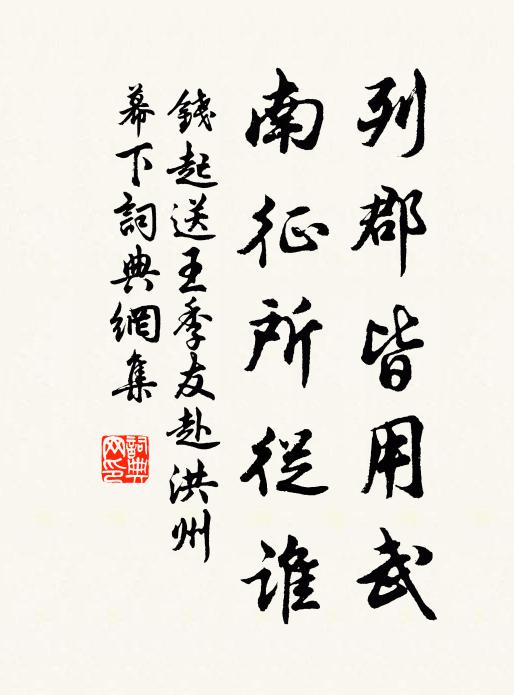 列郡皆用武
南征所從誰
錢起送王季友赴洪州
幕下詞典網集
詞典
网印